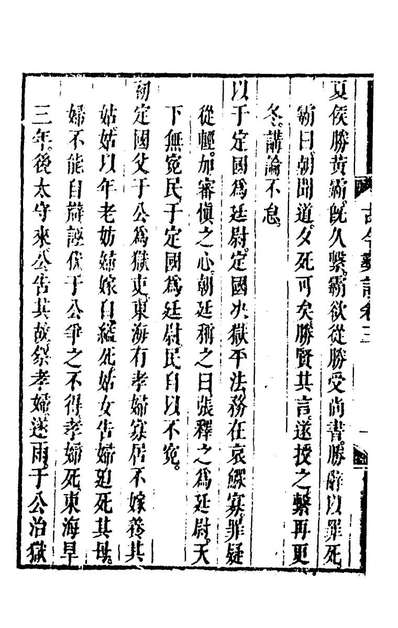 古今彝語卷三
夏侯勝黃霸旣久繫霸欲從勝受尚書勝辭以罪死
霸曰朝聞道夕死可矣勝賢其言遂授之繫再更
冬講論不怠
以于定國爲廷尉定國决獄平法務在哀鰥寡罪疑
從輕加審慎之心朝廷稱之曰張釋之爲廷尉天
下無冤民于定國爲廷尉民自以不冤
初定國父于公爲獄吏東海有孝婦寡居不嫁養其
姑姑以年老妨婦嫁自縊死姑女告婦廹死其母
婦不能自辯誣伏于公爭之不得孝婦死東海旱
三年後太守來公告其故祭孝婦遂雨于公治獄